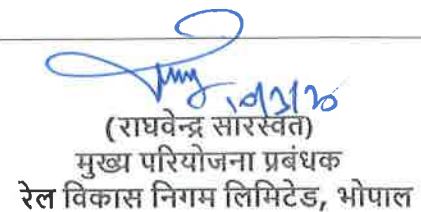 10/3/20
(राघवेन्द्र सारस्वत)
मुख्य परियोजना प्रबंधक
रेल विकास निगम लिमिटेड, भोपाल